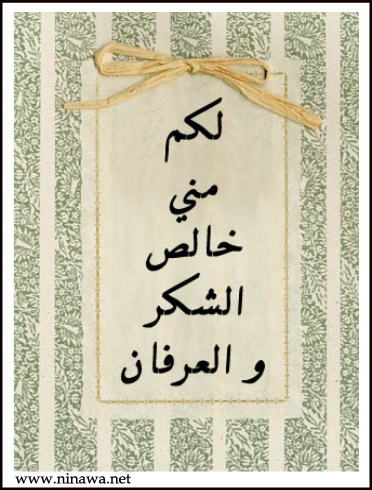 لكم
مني
خالص
الشكر
و العرفان
www.ninawa.net